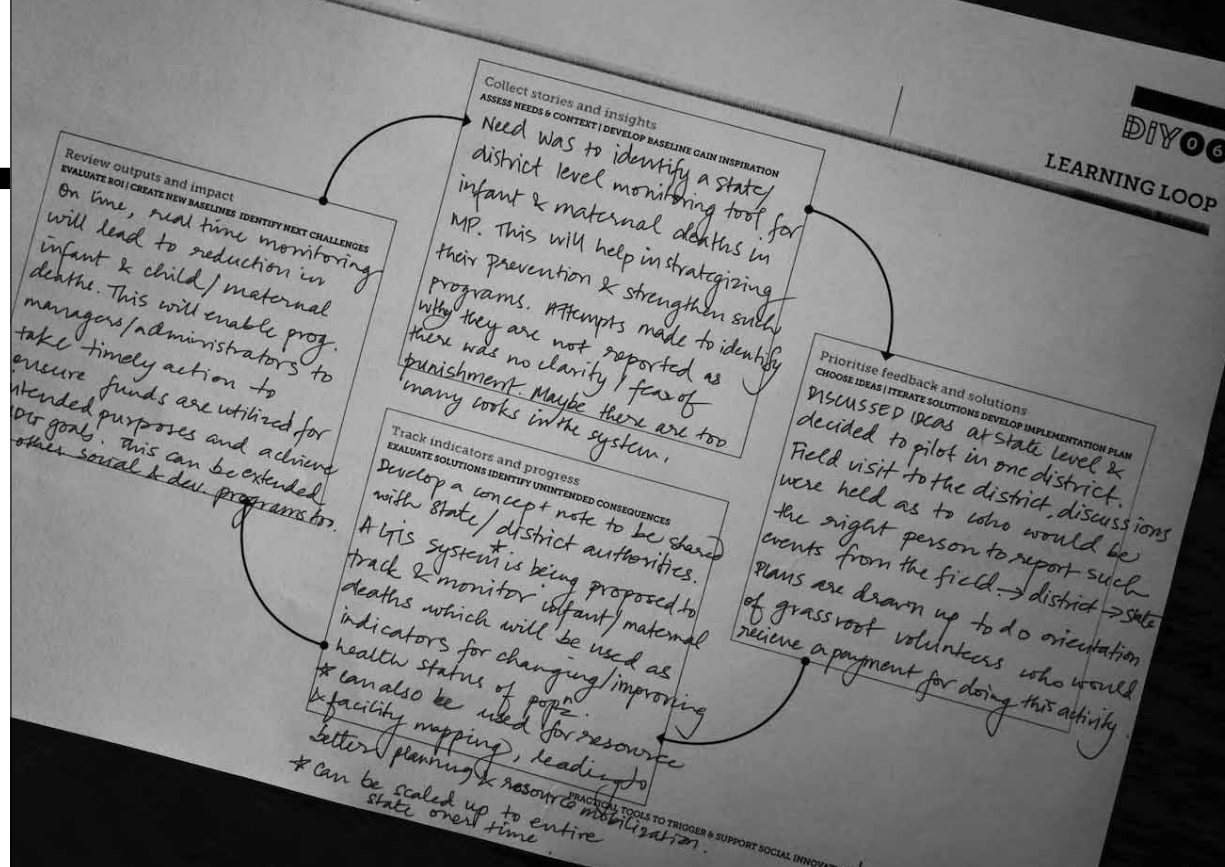 DIY06
LEARNING LOOP
Collect stories and insights
ASSESS NEEDS & CONTEXT | DEVELOP BASELINE GAIN INSPIRATION
Need was to identify a state/
district level monitoring tool for
infant & maternal deaths in
MP. This will help in strategizing
their prevention & strengthen such
programs. Attempts made to identify
why they are not reported as
there was no clarity / fear of
punishment. Maybe there are too
many cooks in the system.
Prioritise feedback and solutions
CHOOSE IDEAS | ITERATE SOLUTIONS DEVELOP IMPLEMENTATION PLAN
DISCUSSED IDEAS at State level &
decided to pilot in one district.
Field visit to the district, discussions
were held as to who would be
the right person to report such
events from the field → district → state
Plans are drawn up to do orientation
of grassroot volunteers who would
recieve a payment for doing this activity.
Track indicators and progress
EVALUATE SOLUTIONS IDENTIFY UNINTENDED CONSEQUENCES
Develop a concept note to be shared
with State/district authorities.
A GIS system* is being proposed to
track & monitor infant/maternal
deaths which will be used as
indicators for changing/improving
health status of popn.
* can also be used for resource
& facility mapping, leading to
better planning & resource mobilization.
* can be scaled up to entire
state over time.
Review outputs and impact
EVALUATE ROI | CREATE NEW BASELINES IDENTIFY NEXT CHALLENGES
On time, real time monitoring
will lead to reduction in
infant & child/maternal
deaths. This will enable prog.
managers/administrators to
take timely action to
ensure funds are utilized for
intended purposes and achieve
goals. This can be extended
other social & dev. programs too.
PRACTICAL TOOLS TO TRIGGER & SUPPORT SOCIAL INNOVAT